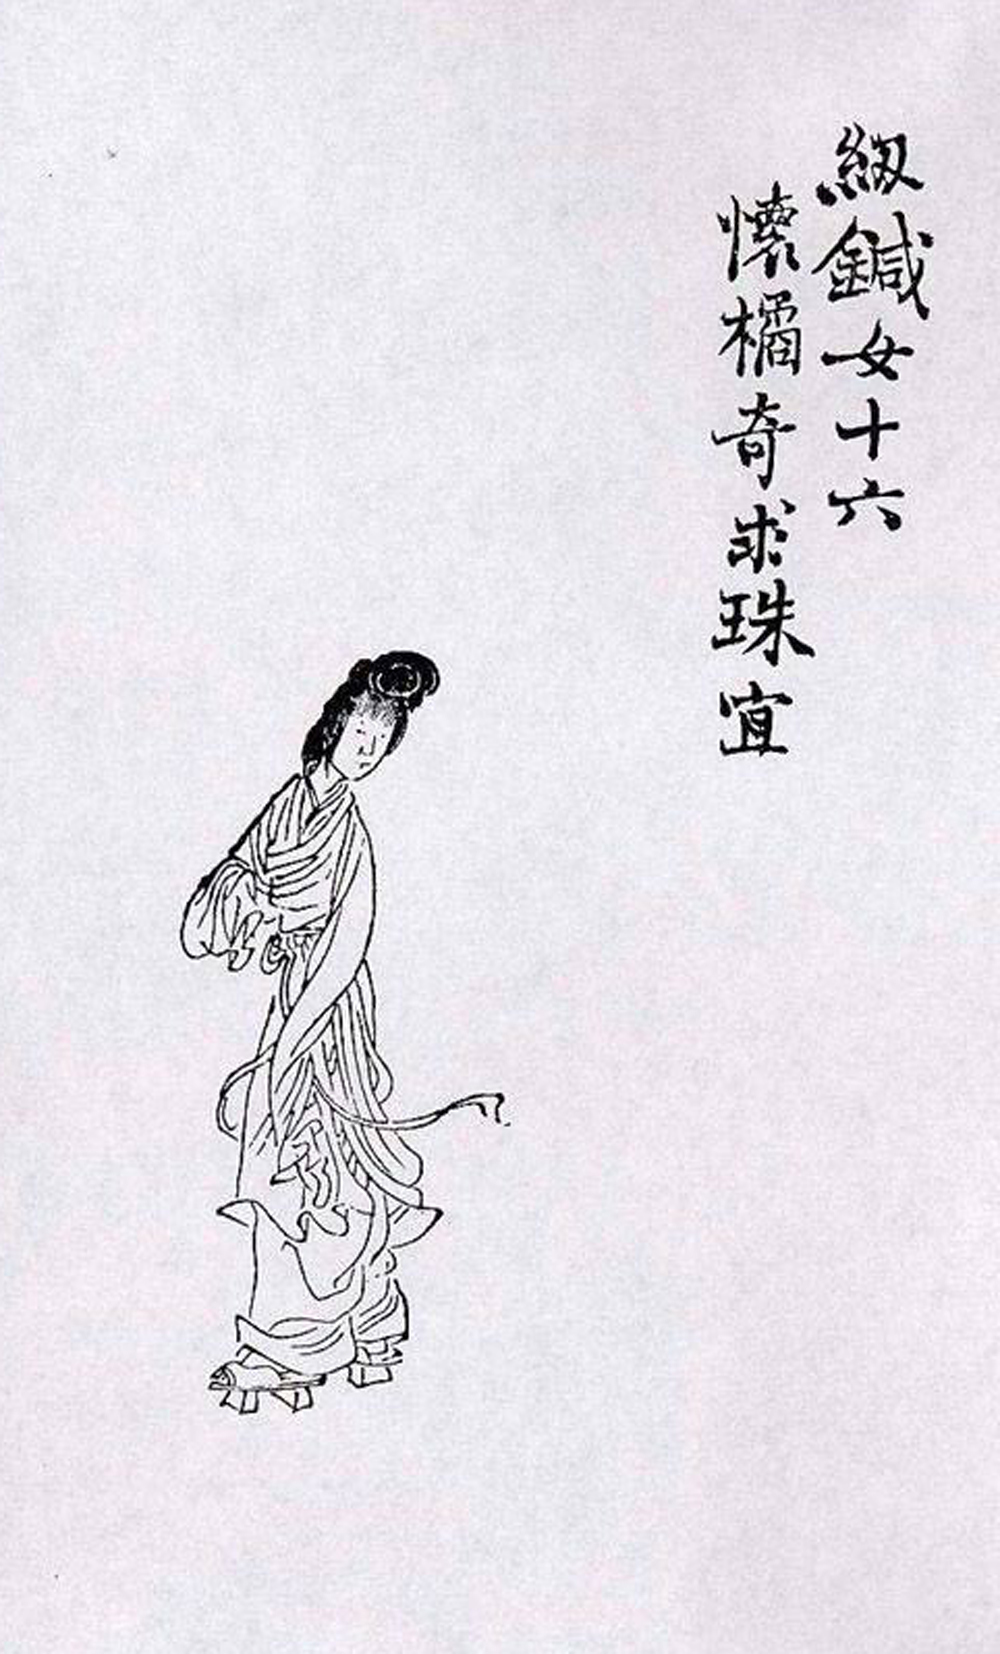 紉鍼女十六
懷橘奇求珠宜